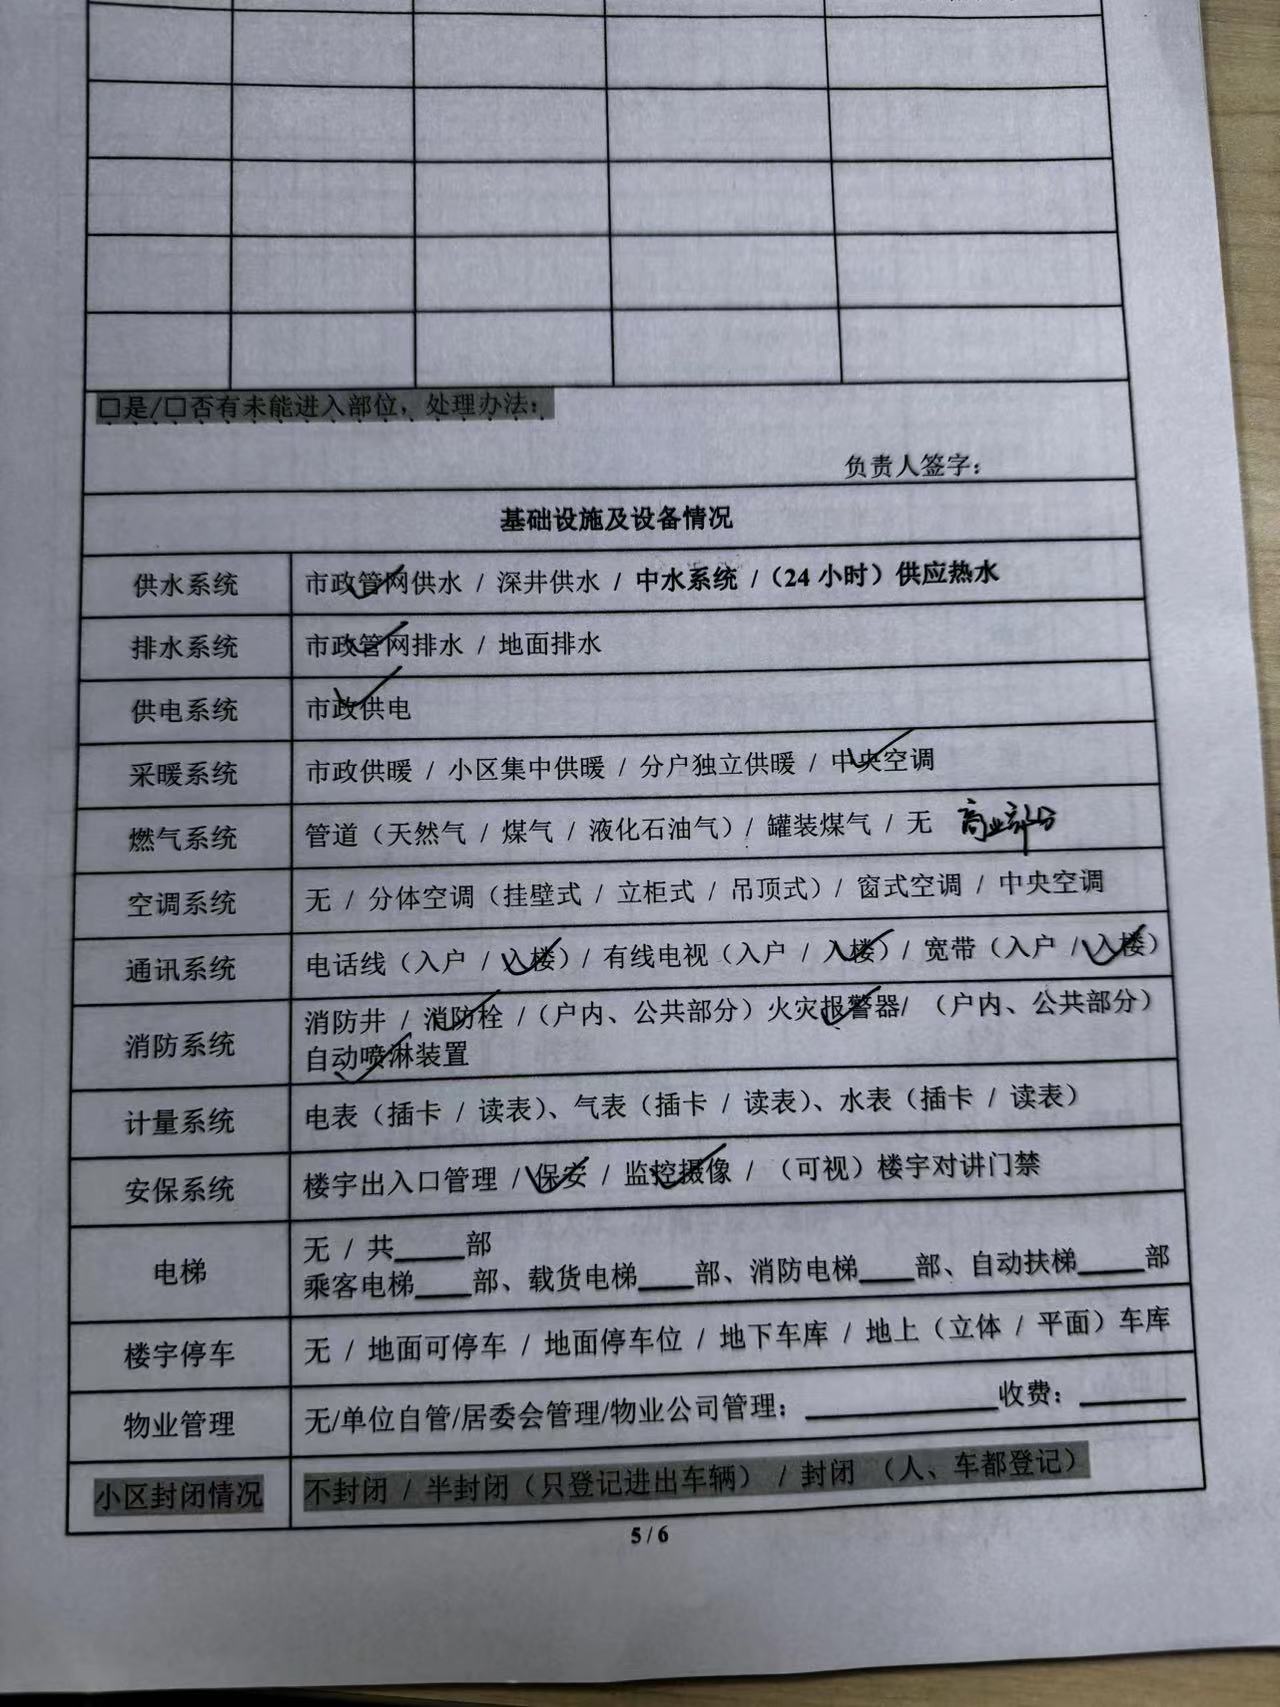 □是/□否有未能进入部位，处理办法：
负责人签字：
基础设施及设备情况
供水系统 市政管网供水 / 深井供水 / 中水系统 /（24 小时）供应热水
排水系统 市政管网排水 / 地面排水
供电系统 市政供电
采暖系统 市政供暖 / 小区集中供暖 / 分户独立供暖 / 中央空调
燃气系统 管道（天然气 / 煤气 / 液化石油气）/ 罐装煤气 / 无 商业部分
空调系统 无 / 分体空调（挂壁式 / 立柜式 / 吊顶式）/ 窗式空调 / 中央空调
通讯系统 电话线（入户 / 入楼）/ 有线电视（入户 / 入楼）/ 宽带（入户 / 入楼）
消防系统 消防井 / 消防栓 /（户内、公共部分）火灾报警器/ （户内、公共部分）
自动喷淋装置
计量系统 电表（插卡 / 读表）、气表（插卡 / 读表）、水表（插卡 / 读表）
安保系统 楼宇出入口管理 / 保安 / 监控摄像 / （可视）楼宇对讲门禁
电梯 无 / 共_____部
乘客电梯____部、载货电梯____部、消防电梯____部、自动扶梯_____部
楼宇停车 无 / 地面可停车 / 地面停车位 / 地下车库 / 地上（立体 / 平面）车库
物业管理 无/单位自管/居委会管理/物业公司管理：______________收费：________
小区封闭情况 不封闭 / 半封闭（只登记进出车辆） / 封闭 （人、车都登记）
5 / 6